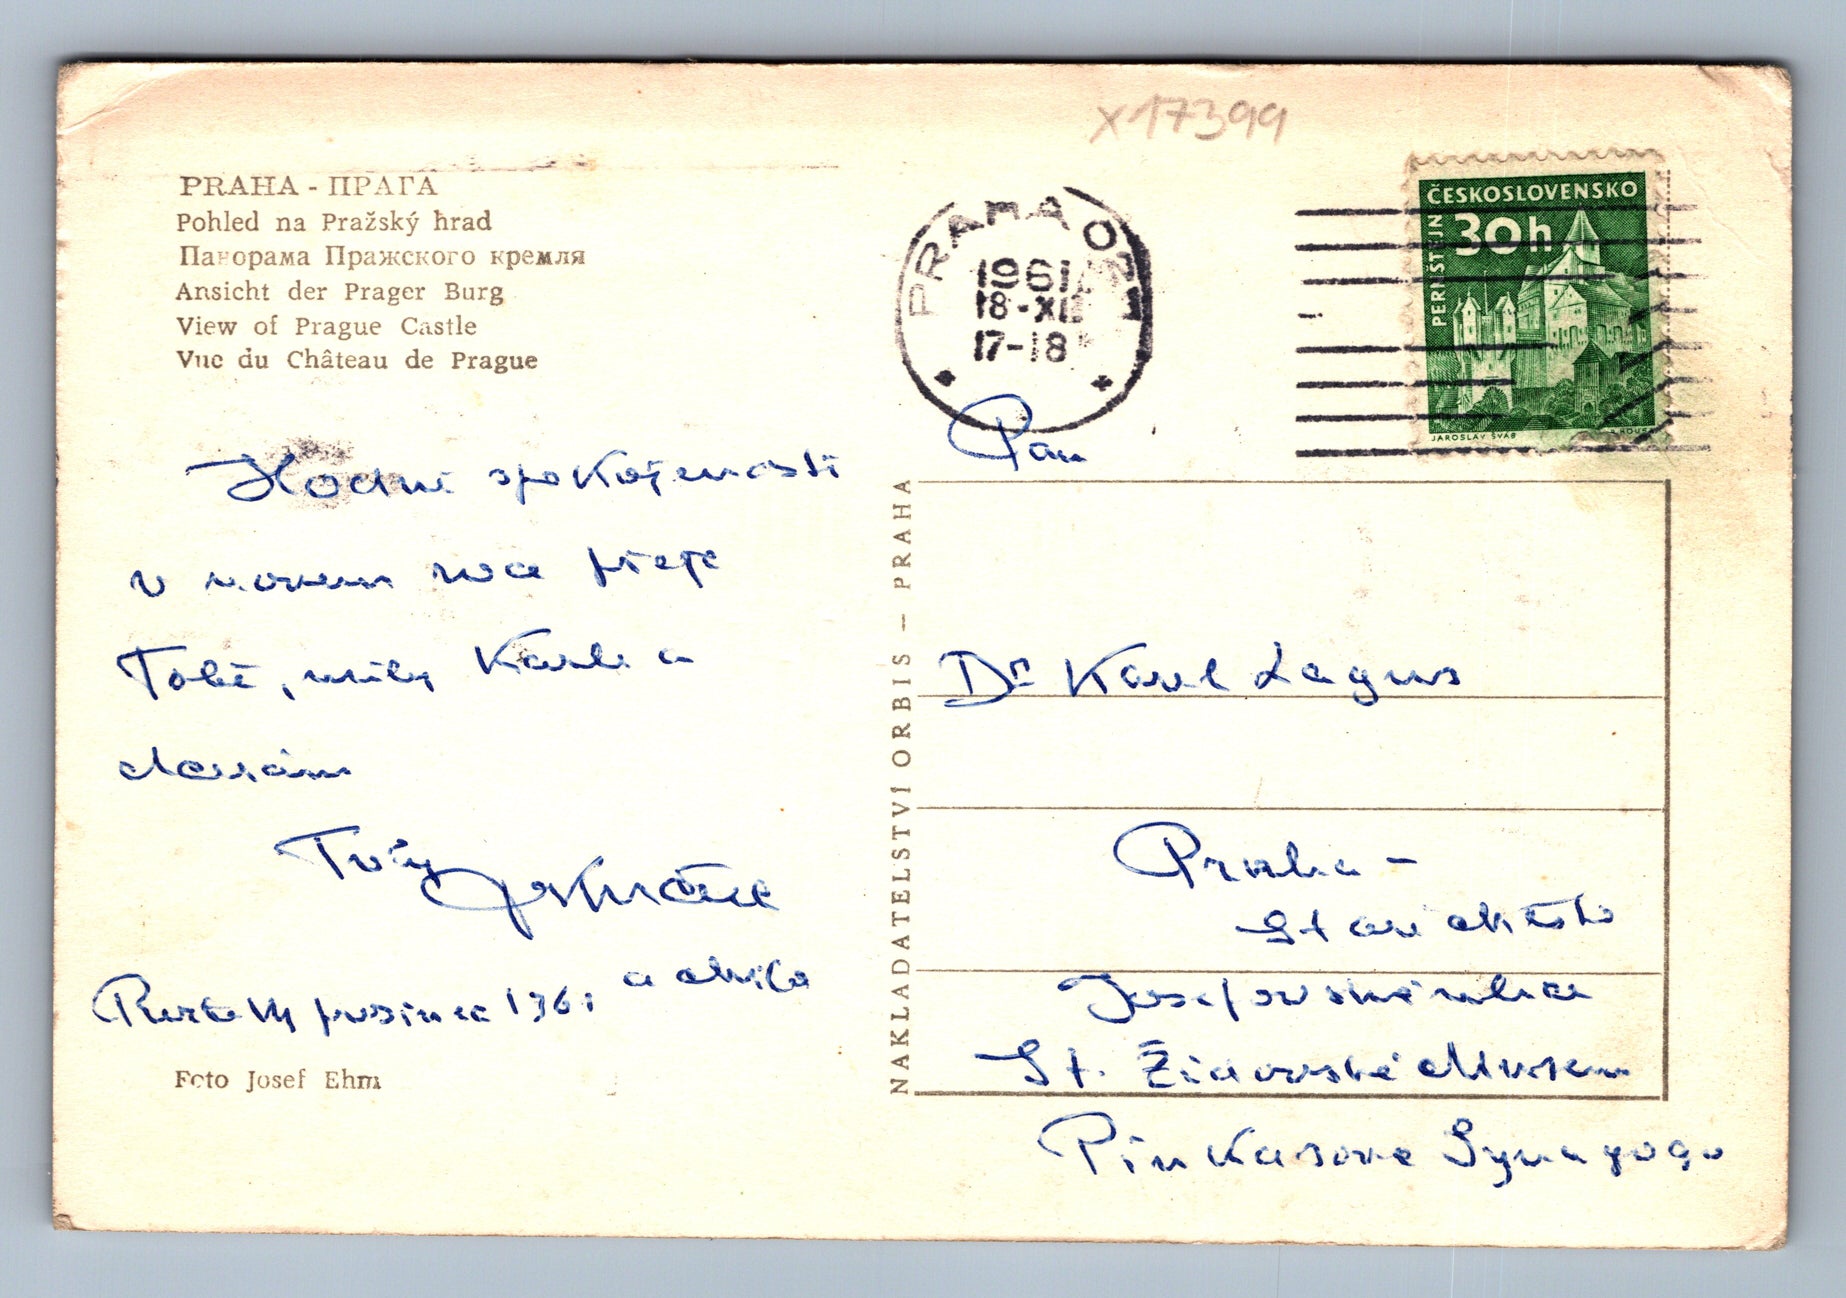 x17399
PRAHA - ПРАГА
Pohled na Pražský hrad
Панорама Пражского кремля
Ansicht der Prager Burg
View of Prague Castle
Vue du Château de Prague
PRAHA 02
1961
18-XII
17-18
ČESKOSLOVENSKO
30h
PERNŠTEJN
JAROSLAV ŠVÁB
Hodně spokojenosti
v novém roce přeje
Tobě, milý Karle a
Tvůj
a
prosince 1961
Foto Josef Ehm
NAKLADATELSTVÍ ORBIS – PRAHA
Pan
Dr Karel Lagus
Praha -
Staré Město
Josefovská ulice
St. Židovské Museum
Pinkasova Synagoga